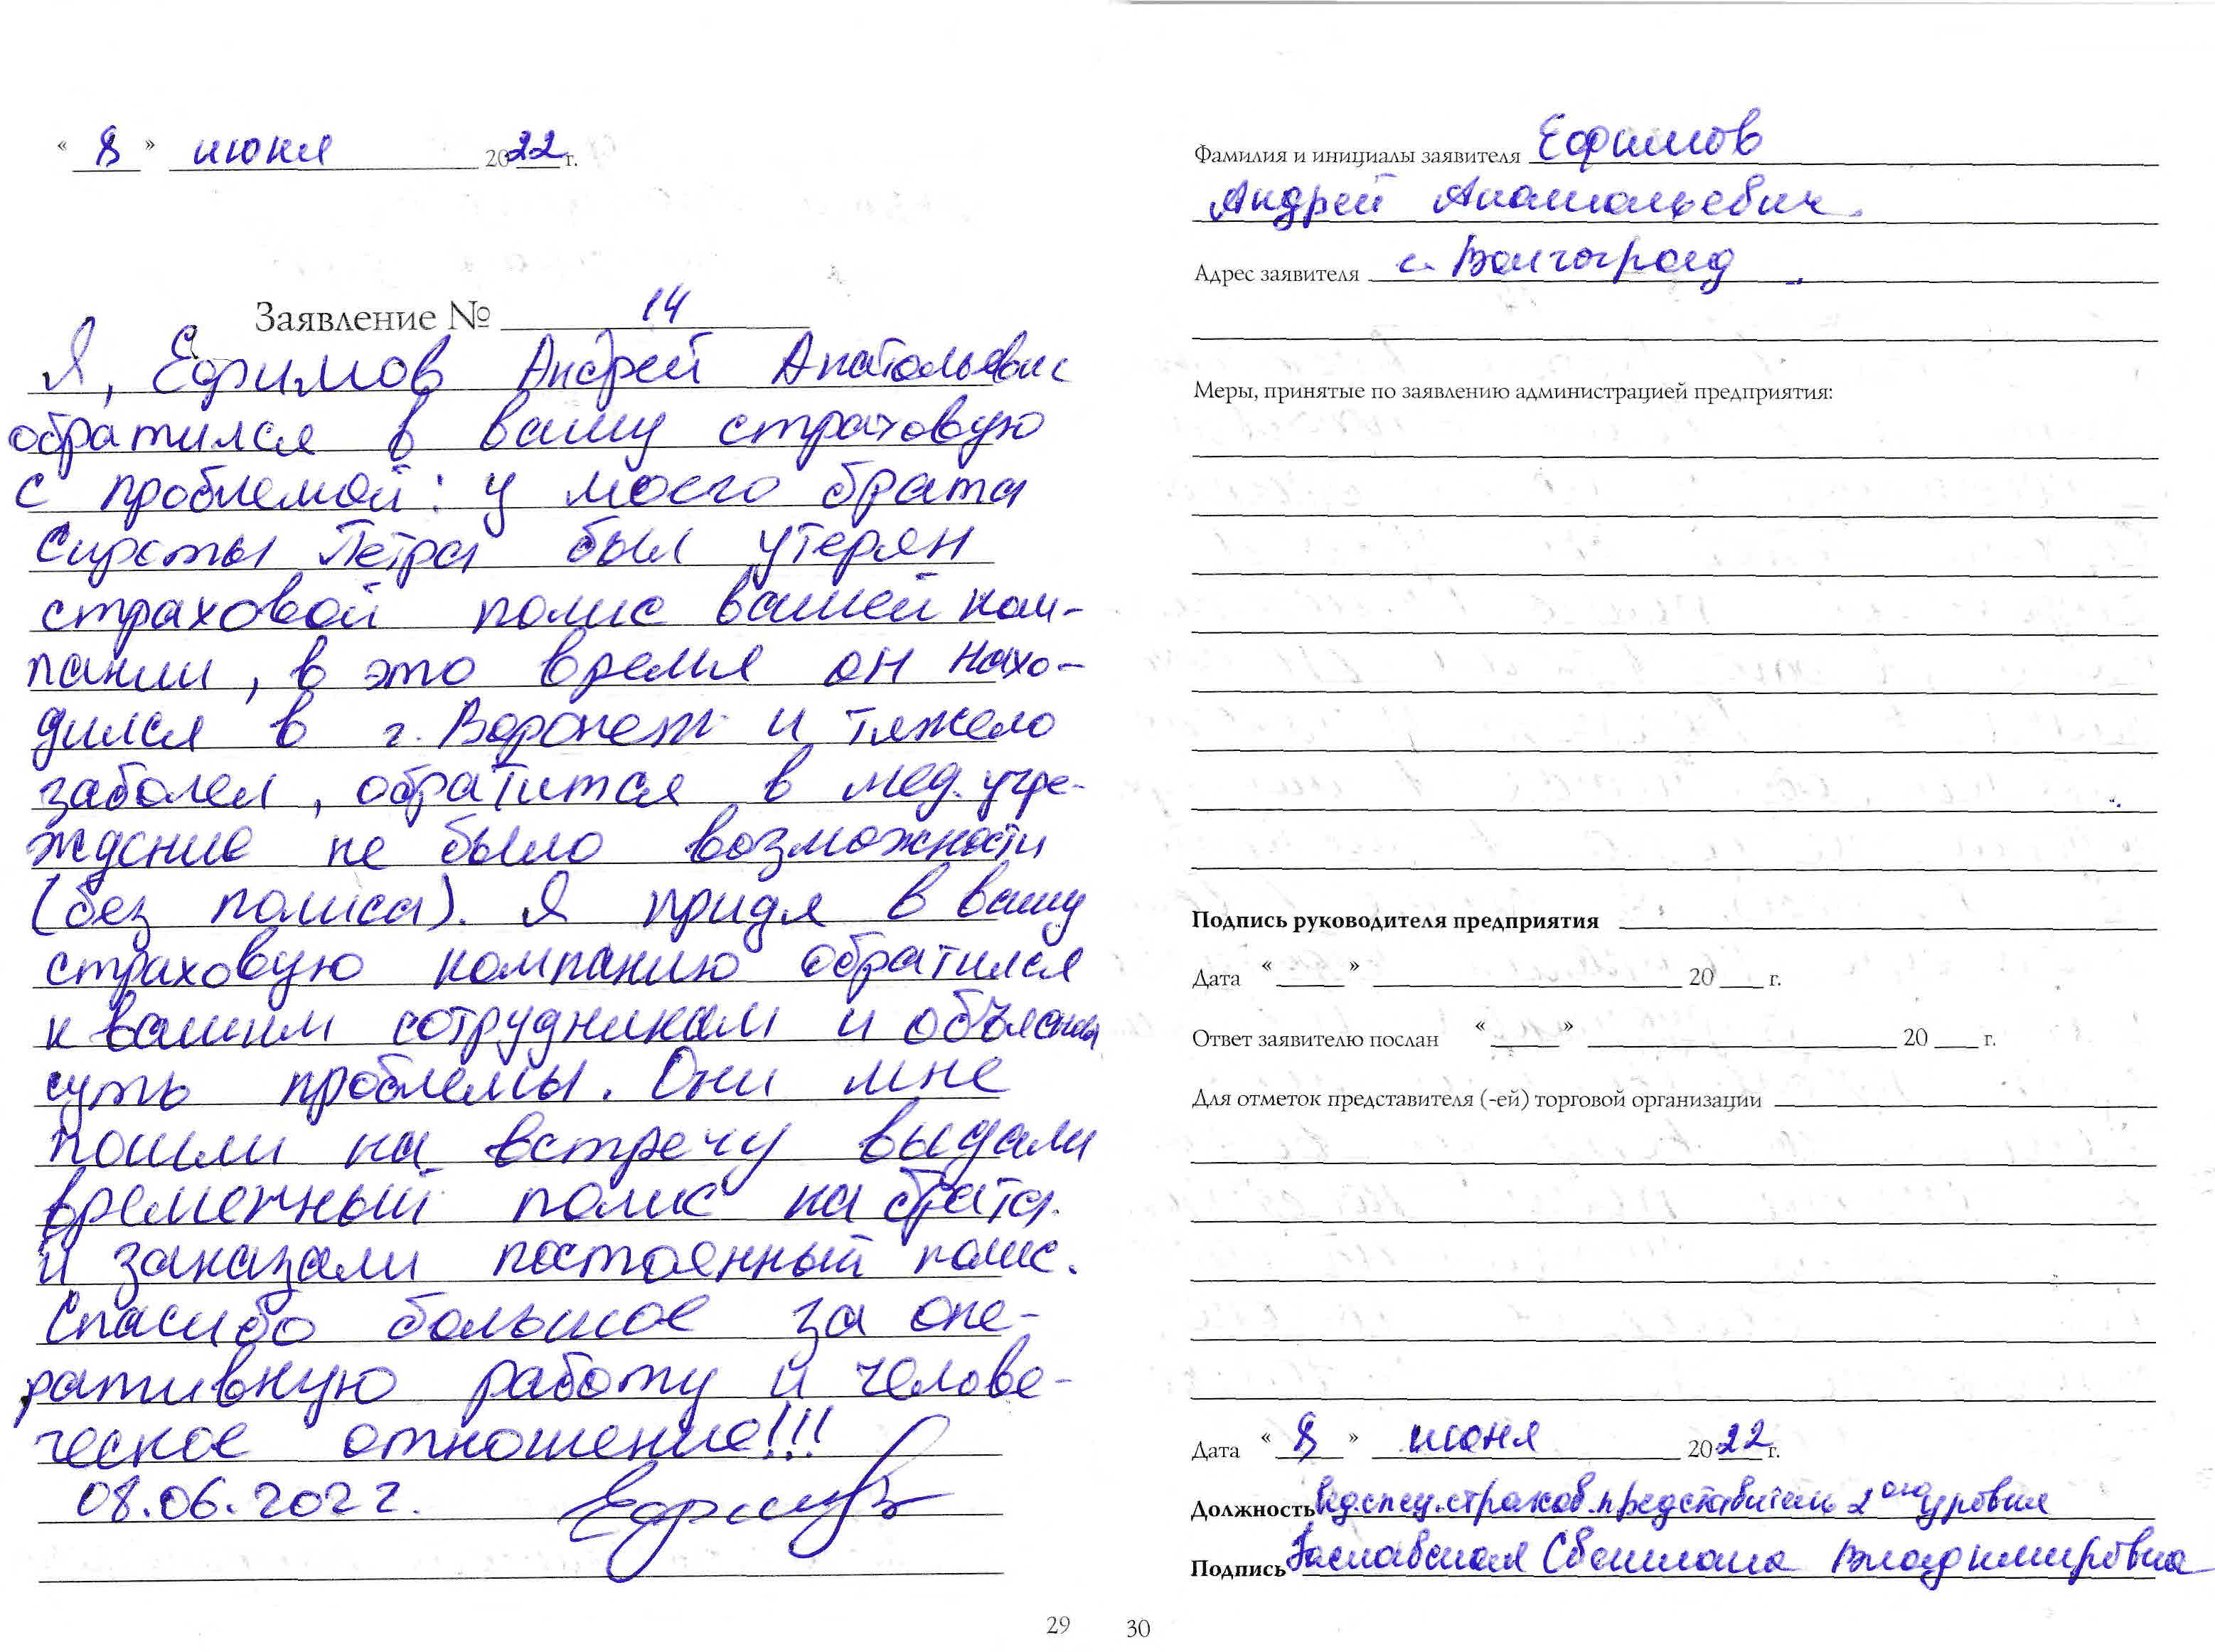 « 8 » июня 2022 г.
Заявление № 14
Я, Ефимов Андрей Анатольевич
обратился в вашу страховую
с проблемой: у моего брата
Сироты Петра был утерян
страховой полис вашей ком-
пании, в это время он нахо-
дился в г. Воронеж и тяжело
заболел, обратится в мед. учре-
ждение не было возможности
(без полиса). Я придя в вашу
страховую компанию обратился
к вашим сотрудникам и объяснил
суть проблемы. Они мне
пошли на встречу выдали
временный полис на брата
и заказали постоянный полис.
Спасибо большое за опе-
ративную работу и челове-
ческое отношение!!!
08.06.2022.
29
Фамилия и инициалы заявителя Ефимов
Андрей Анатольевич.
Адрес заявителя г. Волгоград
Меры, принятые по заявлению администрацией предприятия:
Подпись руководителя предприятия
Дата « » 20 г.
Ответ заявителю послан « » 20 г.
Для отметок представителя (-ей) торговой организации
Дата « 8 » июня 2022 г.
Должность страхов. представитель 2ого уровня
Подпись Светлана Владимировна
30